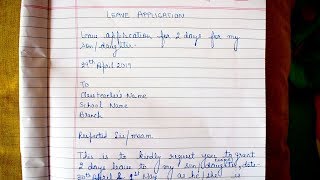 LEAVE APPLICATION
Leave application for 2 days for my
son/daughter.
29th April 2019
To
Classteacher's Name
School Name
Branch
Respected Sir/maam,
This is to kindly request you to grant
2 days leave to my son/daughter, date
30th April & 1st May as he/she is